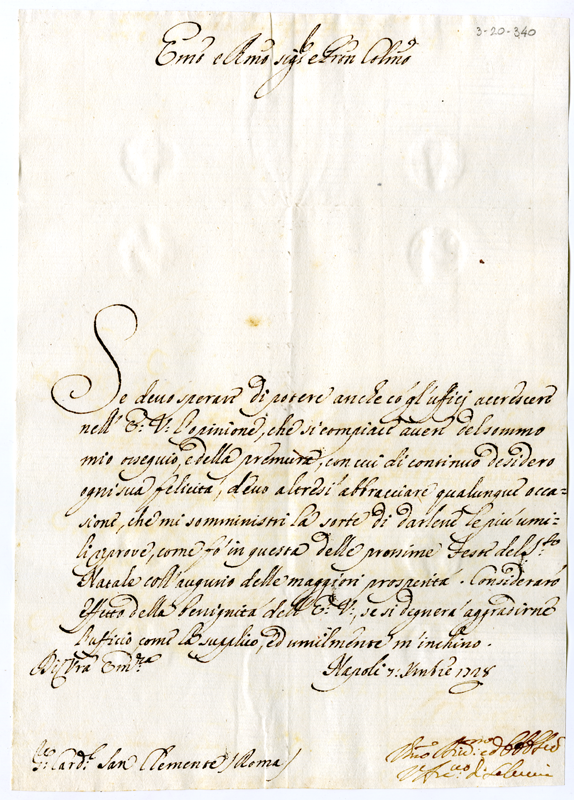 3-20-340
Emo e Rmo sigr e Pron Colmo
Se devo sperare di potere anche co' gl'ufficj accrescere
nell' E: V: l'opinione, che si compiace avere del sommo
mio ossequio, e della premura, con cui di continuo desidero
ogni sua felicità, devo altresì abbracciare qualunque occa=
sione, che mi somministri la sorte di darlene le più umi=
li prove, come fò in questa delle prossime Feste del Sto
Natale coll'augurio delle maggiori prosperità. Considerarò
effetto della benignità dell' E: V:, se si degnerà aggradirne
l'ufficio, come la supplico, ed umilmente m'inchino.
Di Vra Emza Napoli 7: Xmbre 1728
Sr Card: San Clemente / Roma /